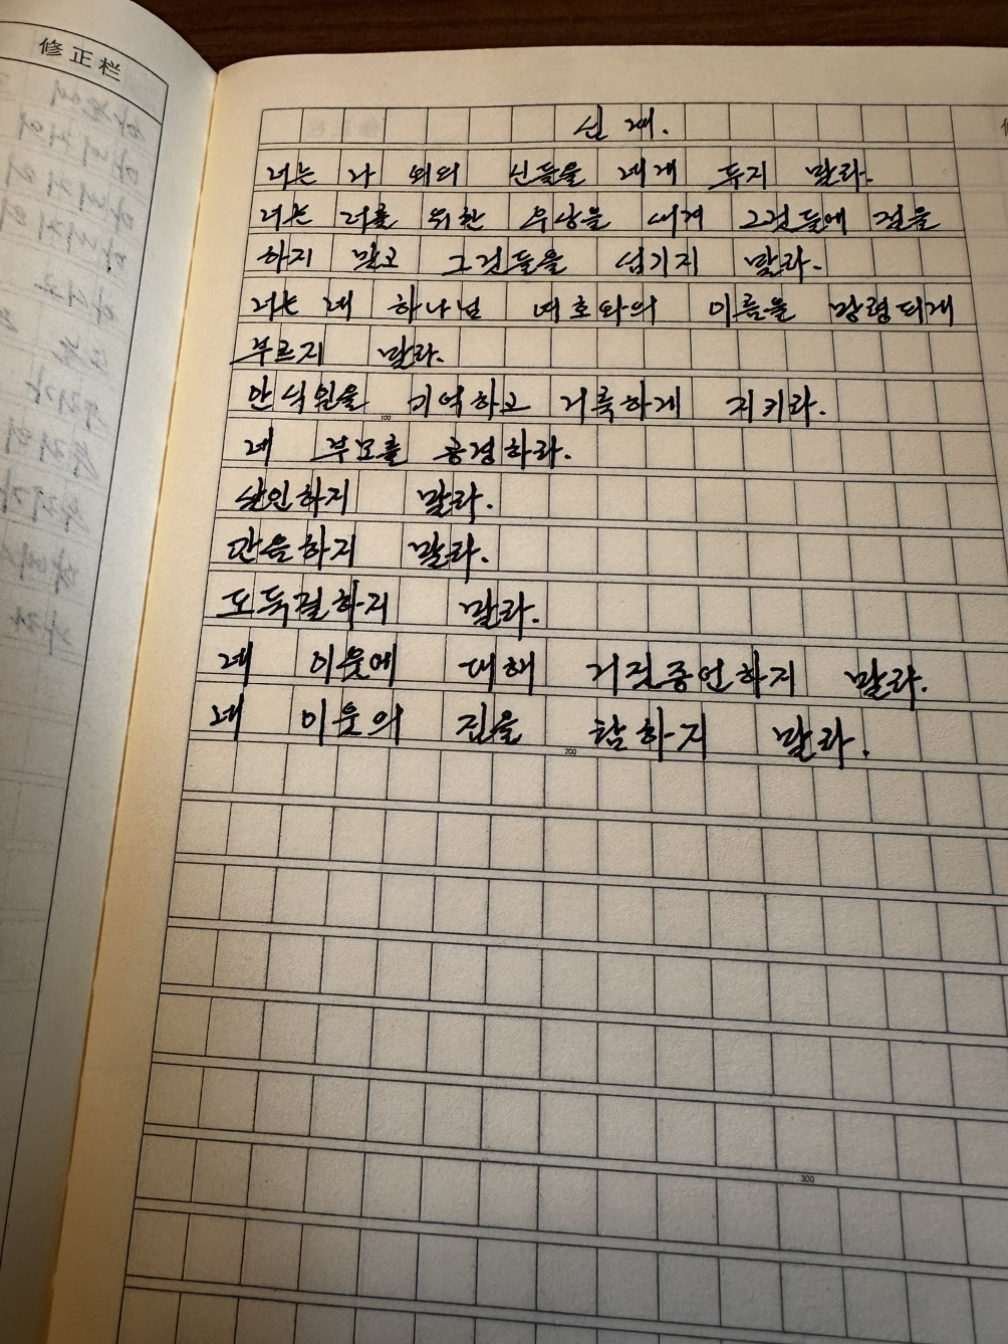 修正栏
신 계.
너는 나 외의 신들을 네게 두지 말라.
너는 너를 위한 우상을 새겨 그것들에 절을
하지 말고 그것들을 섬기지 말라.
너는 네 하나님 여호와의 이름을 망령되게
부르지 말라.
안식일을 기억하고 거룩하게 지키라.
네 부모를 공경하라.
살인하지 말라.
간음하지 말라.
도둑질하지 말라.
네 이웃에 대해 거짓증언하지 말라.
네 이웃의 집을 탐하지 말라.
100
200
300